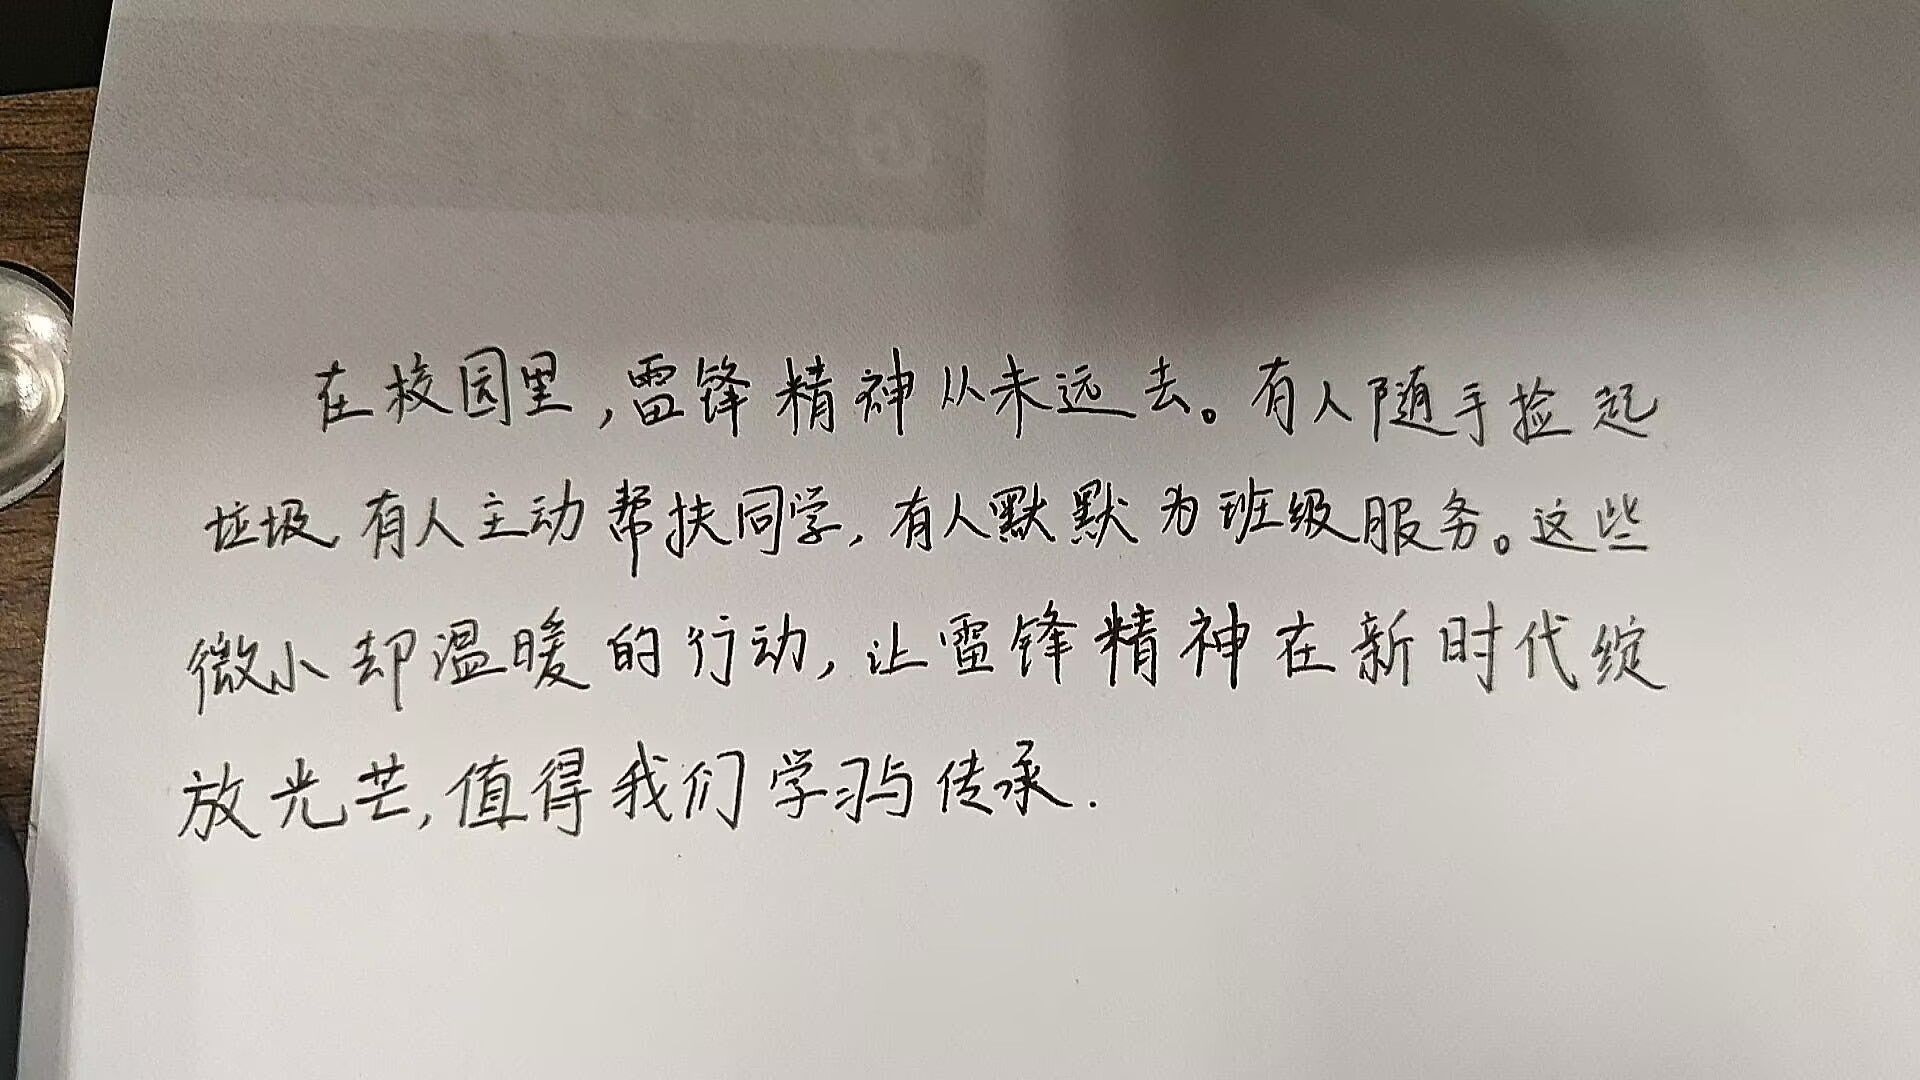 在校园里,雷锋精神从未远去。有人随手捡起
垃圾 有人主动帮扶同学,有人默默为班级服务。这些
微小却温暖的行动,让雷锋精神在新时代绽
放光芒,值得我们学习与传承.